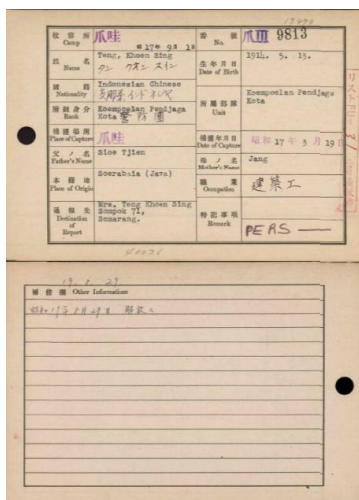 收容所 Camp 爪哇
昭 17年 9月 1日
番號 No. 爪III 9813
姓名 Name Teng, Khoen Sing
タン クオン スイン
生年月日 Date of Birth 1914. 5. 15.
國籍 Nationality Indonesian Chinese
階級身分 Rank Koempoelan Pendjaga Kota 警防團
所屬部隊 Unit Koempoelan Pendjaga Kota
捕獲場所 Place of Capture 爪哇
捕獲年月日 Date of Capture 昭和 17年 3月 19日
父ノ名 Father's Name Sioe Tjien
母ノ名 Mother's Name Jang
本籍地 Place of Origin Soerabaia (Java)
職業 Occupation 建築工
通報先 Destination of Report Mrs. Teng Khoen Sing
Sompok 71,
Semarang.
特記事項 Remark PERS
19. 8. 29
補修欄 Other Informations
昭和19年8月29日